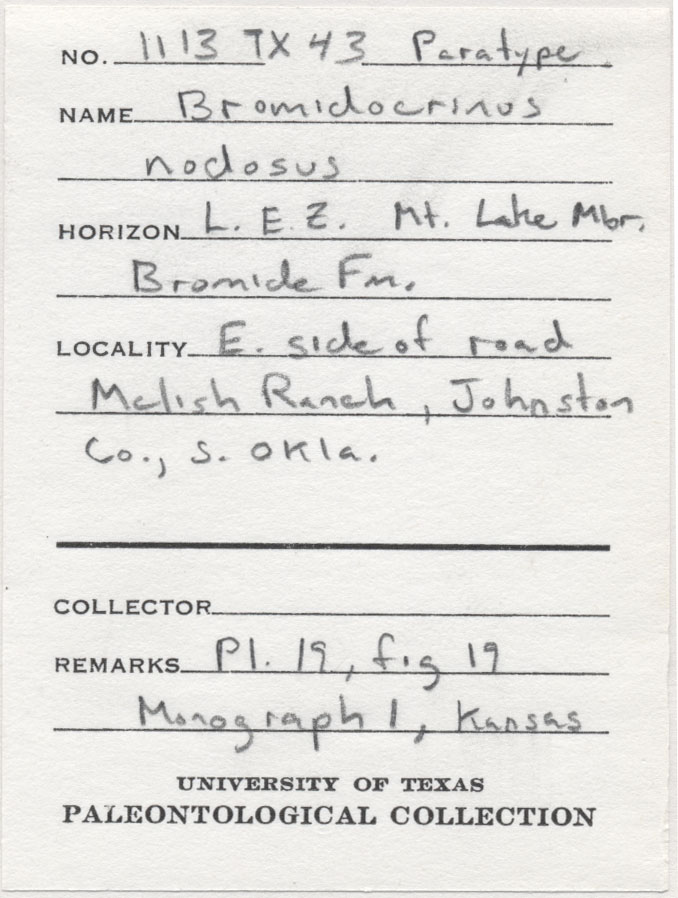 NO. 1113 TX 43 Paratype
NAME Bromidocrinus
nodosus
HORIZON L. E. Z. Mt. Lake Mbr.
Bromide Fm.
LOCALITY E. side of road
Mclish Ranch, Johnston
Co., S. Okla.
COLLECTOR
REMARKS Pl. 19, fig 19
Monograph 1, Kansas
UNIVERSITY OF TEXAS
PALEONTOLOGICAL COLLECTION